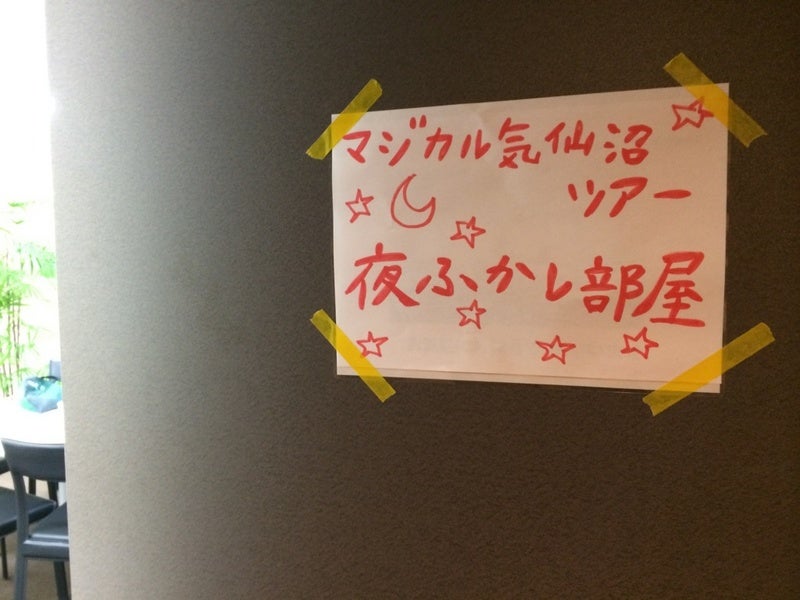 マジカル気仙沼
ツアー
夜ふかし部屋